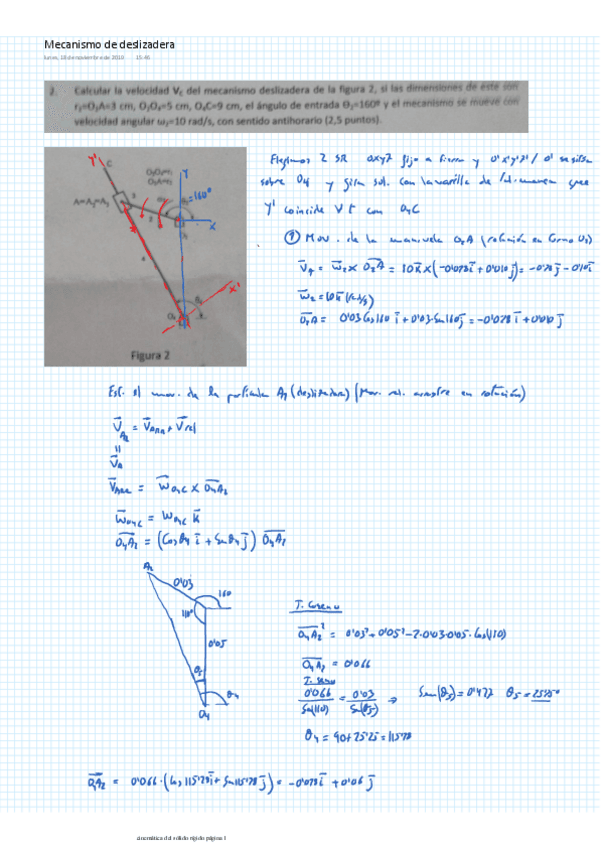 Mecanismo de deslizadera
lunes, 19 de noviembre de 2018 15:46
2. Calcular la velocidad Vc del mecanismo deslizadera de la figura 2, si las dimensiones de éste son
r₂=O₂A=3 cm, O₂O₄=5 cm, O₄C=9 cm, el ángulo de entrada θ₂=160º y el mecanismo se mueve con
velocidad angular ω₂=10 rad/s, con sentido antihorario (2,5 puntos).
Y' C
Y
=160º
X
X'
O₄
Figura 2
Elegimos 2 SR oxyz fijo a tierra y o'x'y'z' / o' se sitúa
sobre O4 y gira sol. con la varilla de tal manera que
y' coincide ∀t con O₄C
① Mov. de la manivela O₂A (rotación en torno O₂)
V̄A = W̄₂ x O₂A = 10k̄ x (-0'028ī + 0'010j̄) = -0'28j̄ - 0'10ī
W̄₂ = 10k̄ (rad/s)
O₂A = 0'03 Cos160 ī + 0'03·Sen160 j̄ = -0'028 ī + 0'010 j̄
Est. el mov. de la partícula A₂ (deslizadera) (Mov. rel. arrastre en rotación)
V̄A₂ = V̄Arr + V̄rel
=
V̄A
V̄Arr = W̄O₄C x O₄A₂
W̄O₄C = WO₄C k̄
O₄A₂ = (Cosθ₄ ī + Senθ₄ j̄) O₄A₂
A₂
0'03
160
110º
0'05
θ₅
θ₄
O₄
T. Coseno
O₄A₂² = 0'03² + 0'05² - 2·0'03·0'05·Cos(110)
O₄A₂ = 0'066
T. Seno
0'066/Sen(110) = 0'03/Sen(θ₅) ⇒ Sen(θ₅) = 0'427 θ₅ = 25'25º
θ₄ = 90 + 25'25 = 115'28
O₄A₂ = 0'066·(Cos115'28ī + Sen115'28j̄) = -0'028ī + 0'06j̄
cinemática del sólido rígido página 1